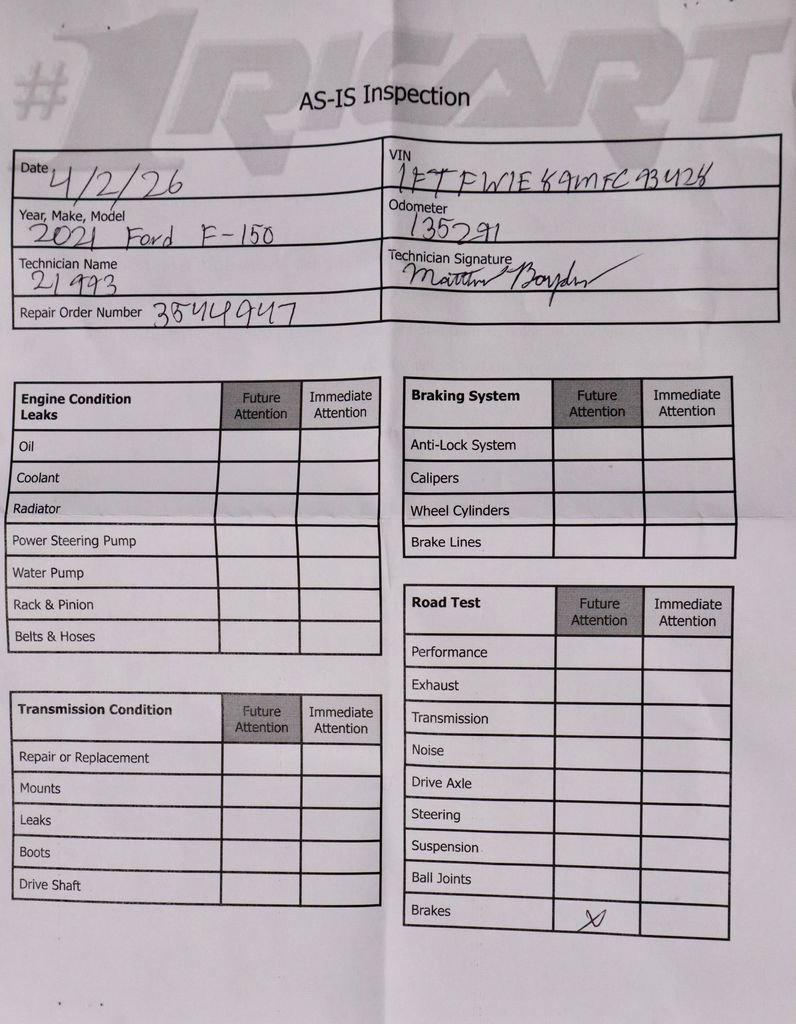 #1 RICART
AS-IS Inspection
Date 4/2/26
VIN 1FTFW1E89MFC93428
Year, Make, Model 2021 Ford F-150
Odometer 135291
Technician Name 21993
Technician Signature
Repair Order Number 3544947
Engine Condition Leaks Future Attention Immediate Attention
Oil
Coolant
Radiator
Power Steering Pump
Water Pump
Rack & Pinion
Belts & Hoses
Braking System Future Attention Immediate Attention
Anti-Lock System
Calipers
Wheel Cylinders
Brake Lines
Transmission Condition Future Attention Immediate Attention
Repair or Replacement
Mounts
Leaks
Boots
Drive Shaft
Road Test Future Attention Immediate Attention
Performance
Exhaust
Transmission
Noise
Drive Axle
Steering
Suspension
Ball Joints
Brakes X